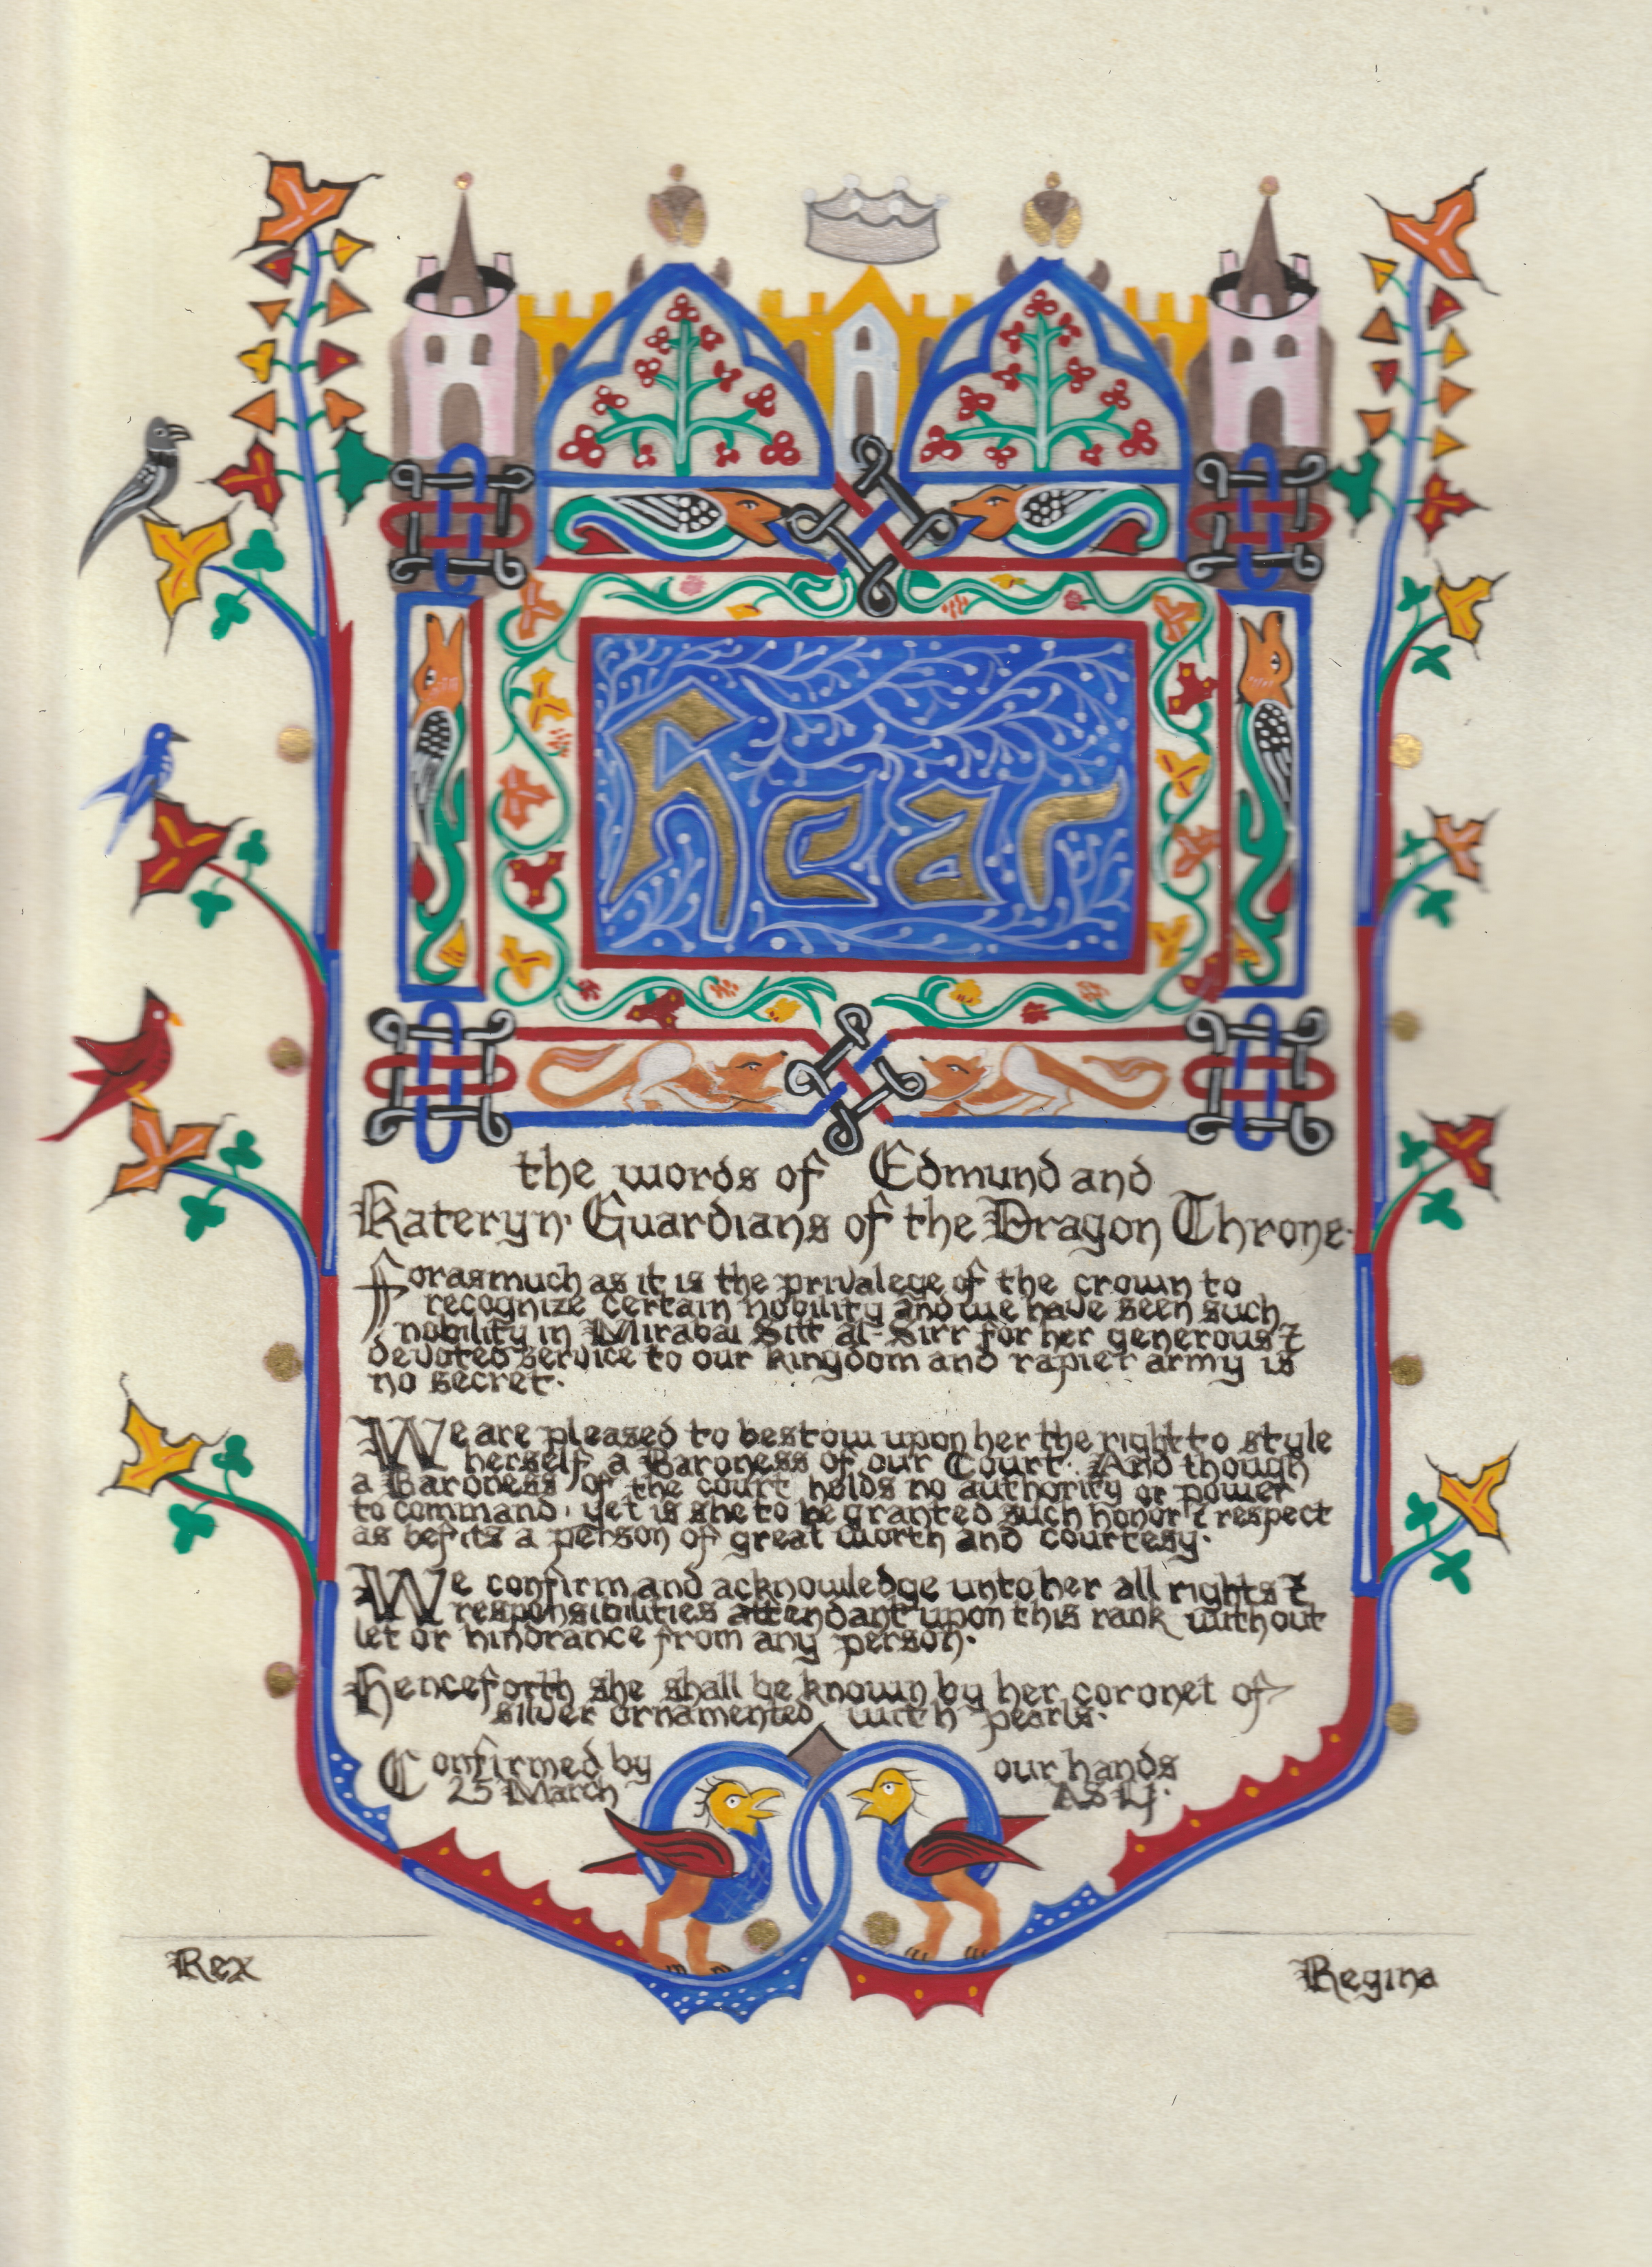 Hear
the words of Edmund and
Kateryn· Guardians of the Dragon Throne·
Forasmuch as it is the privalege of the crown to
recognize certain nobility and we have seen such
nobility in Mirabai Sitt al-Sirr for her generous &
devoted service to our kingdom and rapier army is
no secret·
We are pleased to bestow upon her the right to style
herself a Baroness of our Court· And though
a Baroness of the court holds no authority or power
to command · yet is she to be granted such honor & respect
as befits a person of great worth and courtesy·
We confirm and acknowledge unto her all rights &
responsibilities attendant upon this rank without
let or hindrance from any person·
Henceforth she shall be known by her coronet of
silver ornamented with pearls·
Confirmed by our hands
25 March AS Lj·
Rex Regina